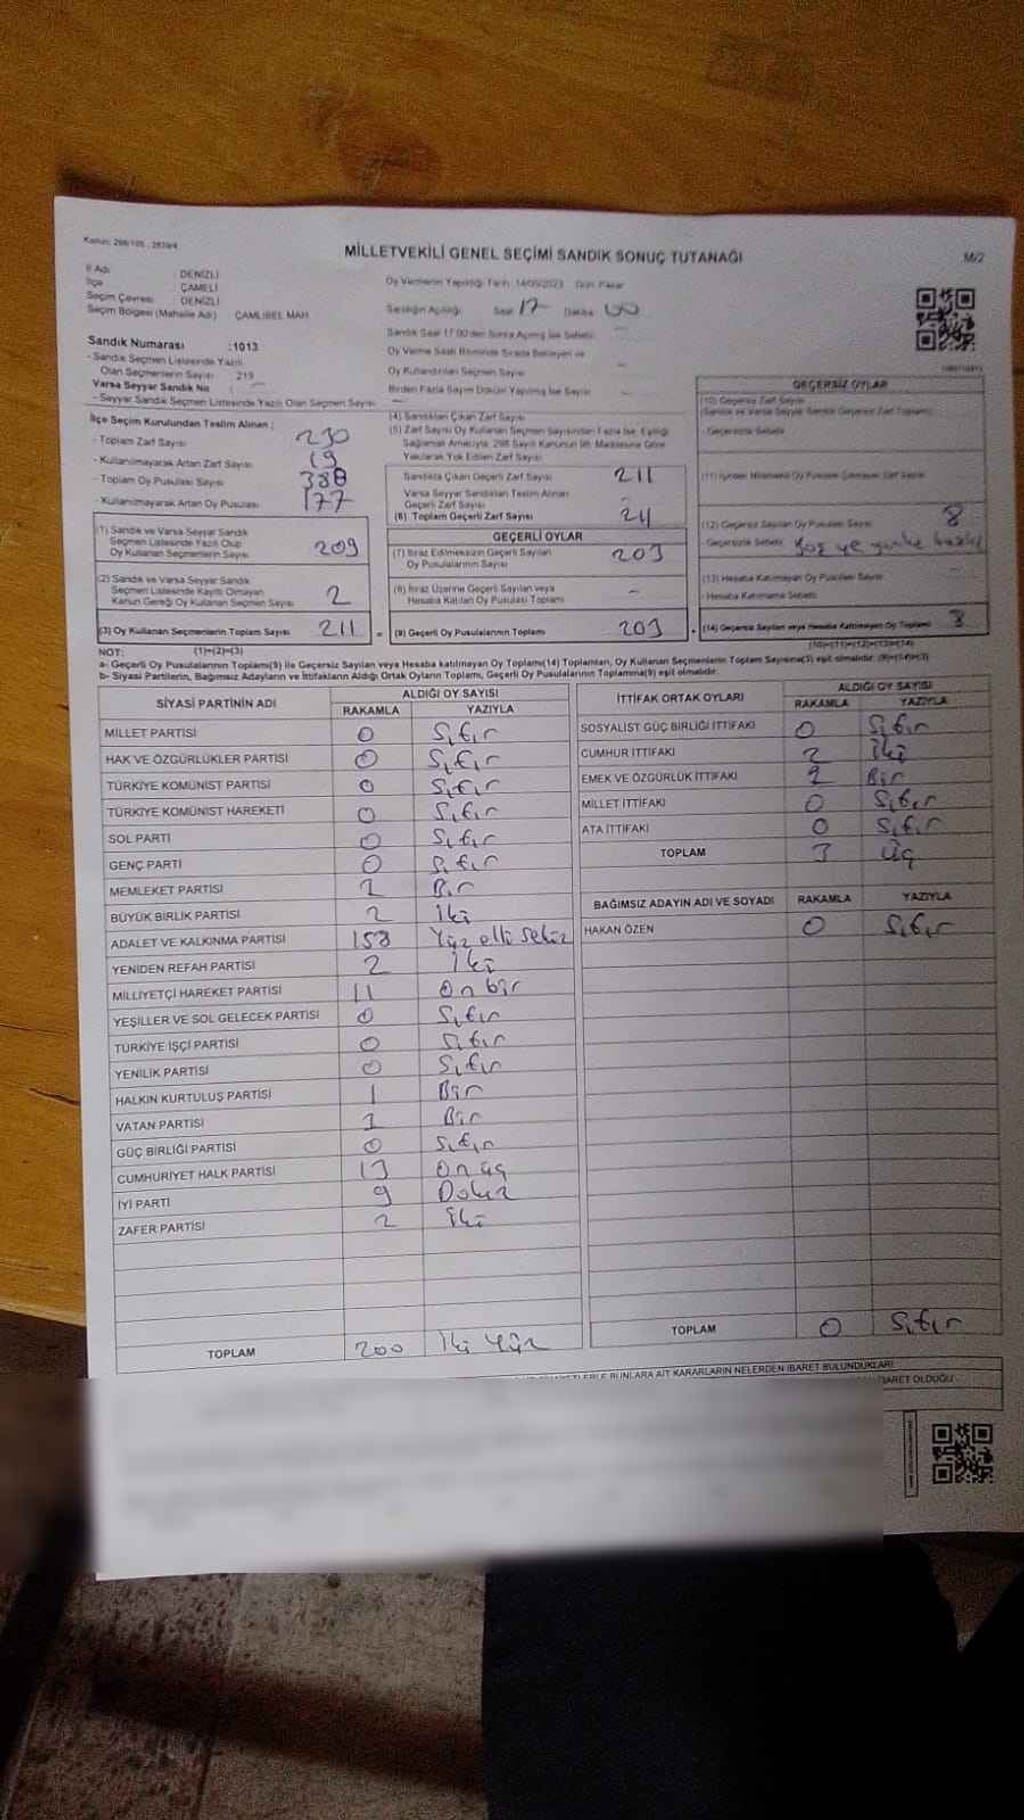 MİLLETVEKİLİ GENEL SEÇİMİ SANDIK SONUÇ TUTANAĞI
M/2
İl Adı : DENİZLİ
İlçe : ÇAMELİ
Seçim Çevresi : DENİZLİ
Seçim Bölgesi (Mahalle Adı) ÇAMLIBEL MAH
Oy Vermenin Yapıldığı Tarih: 14/05/2023 Gün: Pazar
Sandığın Açıldığı Saat 17 Dakika 00
Sandık Numarası :1013
- Sandık Seçmen Listesinde Yazılı
Olan Seçmenlerin Sayısı : 219
Varsa Seyyar Sandık No
- Seyyar Sandık Seçmen Listesinde Yazılı Olan Seçmen Sayısı
Oy Kullandırılan Seçmen Sayısı
Birden Fazla Sayım Döküm Yapılmış İse Sayısı
İlçe Seçim Kurulundan Teslim Alınan ;
- Toplam Zarf Sayısı 230
- Kullanılmayarak Artan Zarf Sayısı 19
- Toplam Oy Pusulası Sayısı 388
- Kullanılmayarak Artan Oy Pusulası 177
(1) Sandık ve Varsa Seyyar Sandık
Seçmen Listesinde Yazılı Olup
Oy Kullanan Seçmenlerin Sayısı 209
(2) Sandık ve Varsa Seyyar Sandık
Seçmen Listesinde Kayıtlı Olmayan
Kanun Gereği Oy Kullanan Seçmen Sayısı 2
(3) Oy Kullanan Seçmenlerin Toplam Sayısı 211 =
(4) Sandıktan Çıkan Zarf Sayısı
Yakılarak Yok Edilen Zarf Sayısı
Sandıkta Çıkan Geçerli Zarf Sayısı 211
Varsa Seyyar Sandıktan Teslim Alınan
Geçerli Zarf Sayısı
(6) Toplam Geçerli Zarf Sayısı
GEÇERLİ OYLAR
(7) İtiraz Edilmeksizin Geçerli Sayılan
Oy Pusulalarının Sayısı 203
(8) İtiraz Üzerine Geçerli Sayılan veya
Hesaba Katılan Oy Pusulası Toplamı -
(9) Geçerli Oy Pusulalarının Toplamı 203
GEÇERSİZ OYLAR
(10) Geçersiz Zarf Sayısı
- Geçersizlik Sebebi
(12) Geçersiz Sayılan Oy Pusulası Sayısı 8
- Geçersizlik Sebebi
(13) Hesaba Katılmayan Oy Pusulası Sayısı
- Hesaba Katılmama Sebebi
(14) Geçersiz Sayılan veya Hesaba Katılmayan Oy Toplamı 8
NOT: (1)+(2)=(3)
a- Geçerli Oy Pusulalarının Toplamı(9) ile Geçersiz Sayılan veya Hesaba katılmayan Oy Toplamı(14) Toplamları, Oy Kullanan Seçmenlerin Toplam Sayısına(3) eşit olmalıdır.
b- Siyasi Partilerin, Bağımsız Adayların ve İttifakların Aldığı Ortak Oyların Toplamı, Geçerli Oy Pusulalarının Toplamına(9) eşit olmalıdır.
SİYASİ PARTİNİN ADI ALDIĞI OY SAYISI
RAKAMLA YAZIYLA
MİLLET PARTİSİ 0 Sıfır
HAK VE ÖZGÜRLÜKLER PARTİSİ 0 Sıfır
TÜRKİYE KOMÜNİST PARTİSİ 0 Sıfır
TÜRKİYE KOMÜNİST HAREKETİ 0 Sıfır
SOL PARTİ 0 Sıfır
GENÇ PARTİ 0 Sıfır
MEMLEKET PARTİSİ 1 Bir
BÜYÜK BİRLİK PARTİSİ 2 İki
ADALET VE KALKINMA PARTİSİ 158 Yüz elli sekiz
YENİDEN REFAH PARTİSİ 2 İki
MİLLİYETÇİ HAREKET PARTİSİ 11 On bir
YEŞİLLER VE SOL GELECEK PARTİSİ 0 Sıfır
TÜRKİYE İŞÇİ PARTİSİ 0 Sıfır
YENİLİK PARTİSİ 0 Sıfır
HALKIN KURTULUŞ PARTİSİ 1 Bir
VATAN PARTİSİ 1 Bir
GÜÇ BİRLİĞİ PARTİSİ 0 Sıfır
CUMHURİYET HALK PARTİSİ 13 On üç
İYİ PARTİ 9 Dokuz
ZAFER PARTİSİ 2 İki
TOPLAM 200 İki Yüz
İTTİFAK ORTAK OYLARI ALDIĞI OY SAYISI
RAKAMLA YAZIYLA
SOSYALİST GÜÇ BİRLİĞİ İTTİFAKI 0 Sıfır
CUMHUR İTTİFAKI 2 İki
EMEK VE ÖZGÜRLÜK İTTİFAKI 1 Bir
MİLLET İTTİFAKI 0 Sıfır
ATA İTTİFAKI 0 Sıfır
TOPLAM 3 Üç
BAĞIMSIZ ADAYIN ADI VE SOYADI RAKAMLA YAZIYLA
HAKAN ÖZEN 0 Sıfır
TOPLAM 0 Sıfır
BUNLARA AİT KARARLARIN NELERDEN İBARET BULUNDUKLARI
İBARET OLDUĞU